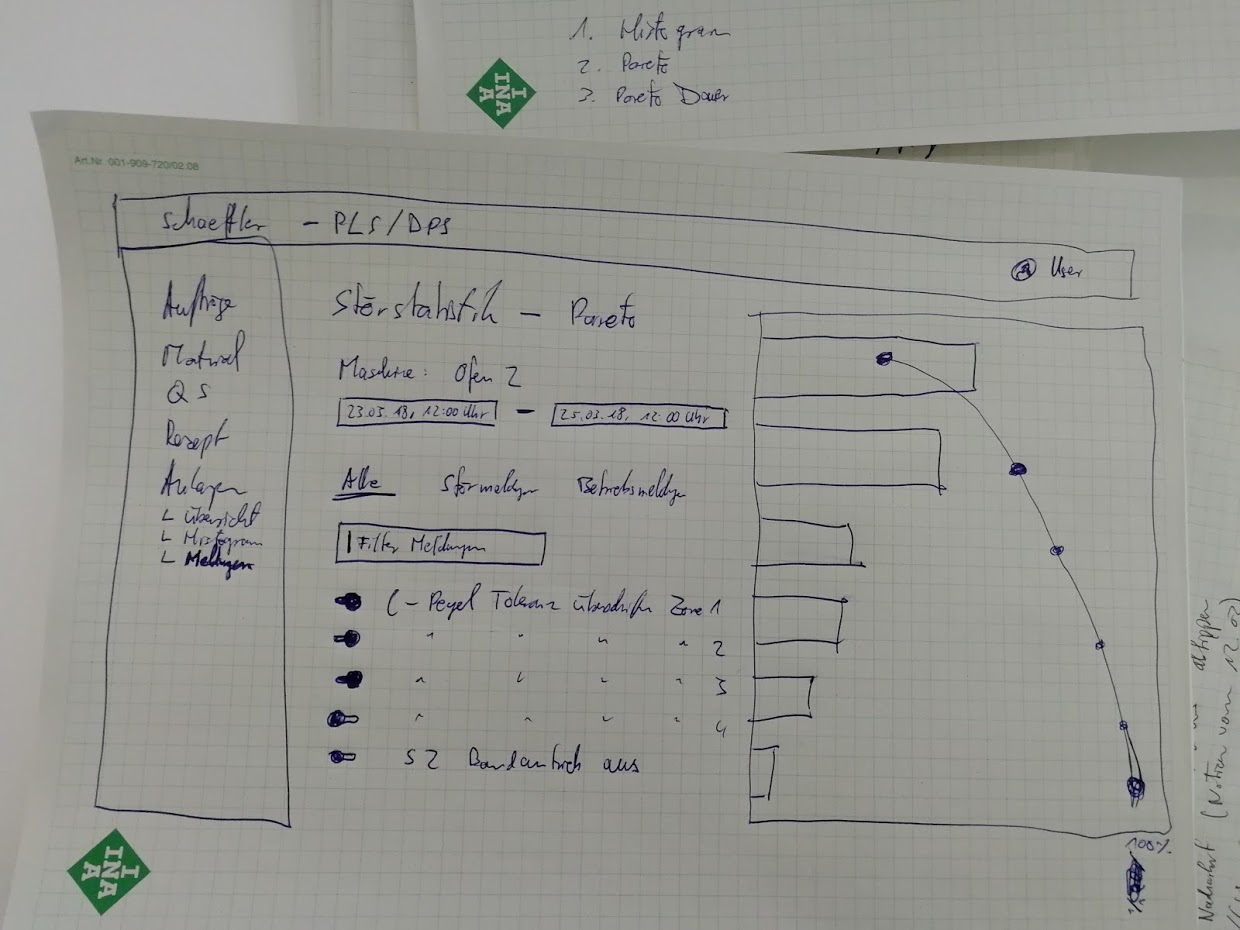 1. Histogram
2. Pareto
3. Pareto Dauer
INA
Art.Nr. 001-909-720/02.08
Schaeffler - PLS/DPS
User
Aufträge
Material
QS
Rezept
Anlagen
└ Übersicht
└ Histogram
└ Meldungen
Störstatistik - Pareto
Maschine: Ofen 2
23.03.18, 12:00 Uhr - 25.03.18, 12:00 Uhr
Alle Störmeldgn Betriebsmeldgn
Filter Meldungen
C-Pegel Toleranz überschritten Zone 1
" " " " 2
" " " " 3
" " " " 4
S2 Bandantrieb aus
100%
INA
abkippen
(Notizen vom 12.03)